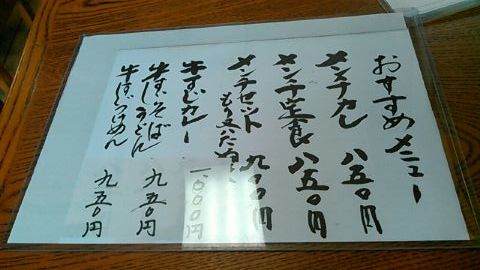 おすすめメニュー
メンチカレー 八五〇円
メンチ定食 八五〇円
メンチセット 九五〇円
牛すじカレー 一、〇〇〇円
牛すじそば
牛すじうどん 九五〇円
牛すじつけめん 九五〇円